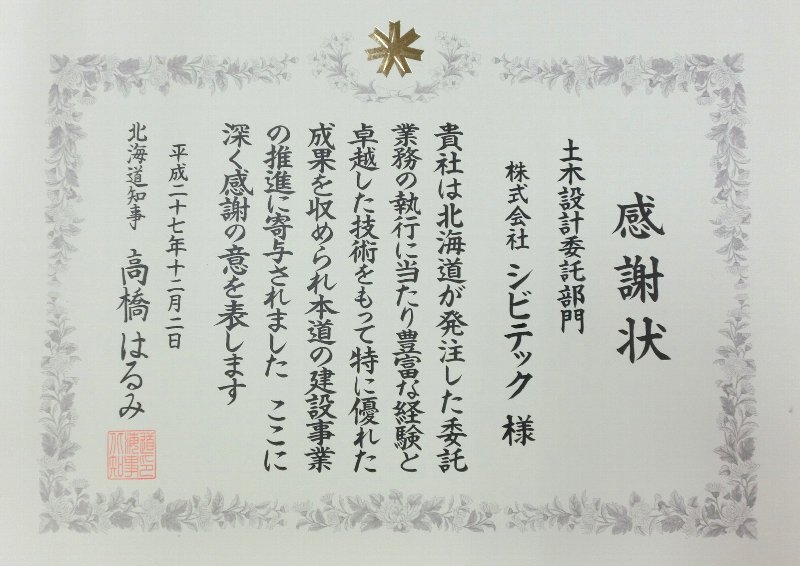 感謝状
土木設計委託部門
株式会社 シビテック 様
貴社は北海道が発注した委託
業務の執行に当たり豊富な経験と
卓越した技術をもって特に優れた
成果を収められ本道の建設事業
の推進に寄与されました ここに
深く感謝の意を表します
平成二十七年十二月二日
北海道知事 高橋はるみ